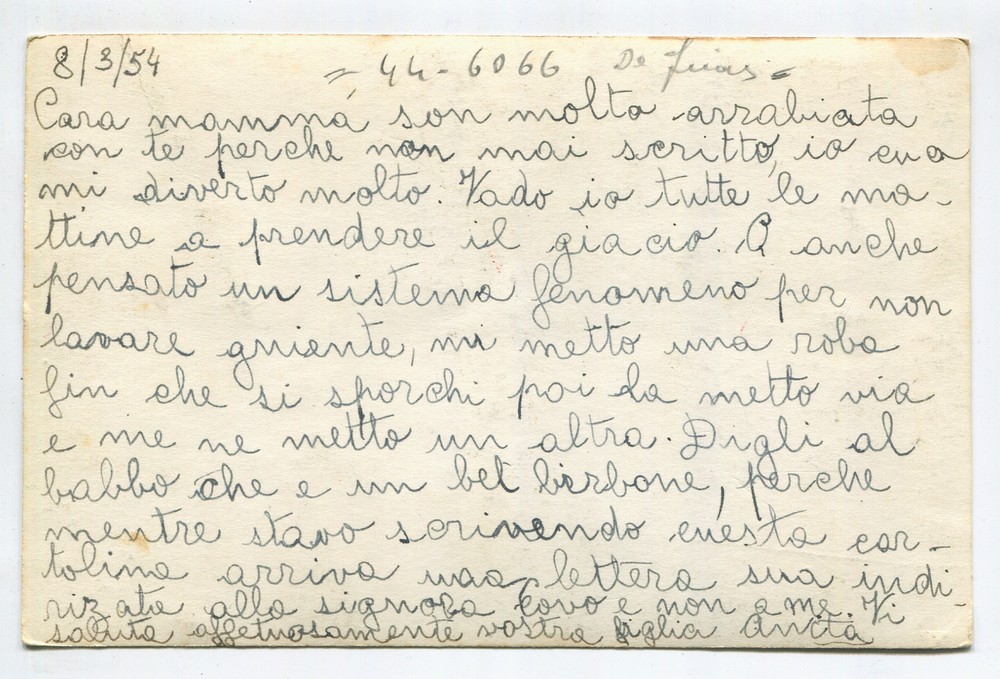 8/3/54 = 44-6066 De =
Cara mamma son molto arrabiata
con te perche non mai scritto, io cua
mi diverto molto. Vado io tutte le ma-
ttine a prendere il giacio. O anche
pensato un sistema fenomeno per non
lavare gniente, mi metto una roba
fin che si sporchi poi la metto via
e me ne metto un altra. Digli al
babbo che e un bel birbone, perche
mentre stavo scrivendo cuesta car-
tolina arriva una lettera sua indi-
rizata alla signora Covo e non a me. Vi
saluta affetuosamente vostra figlia Anita